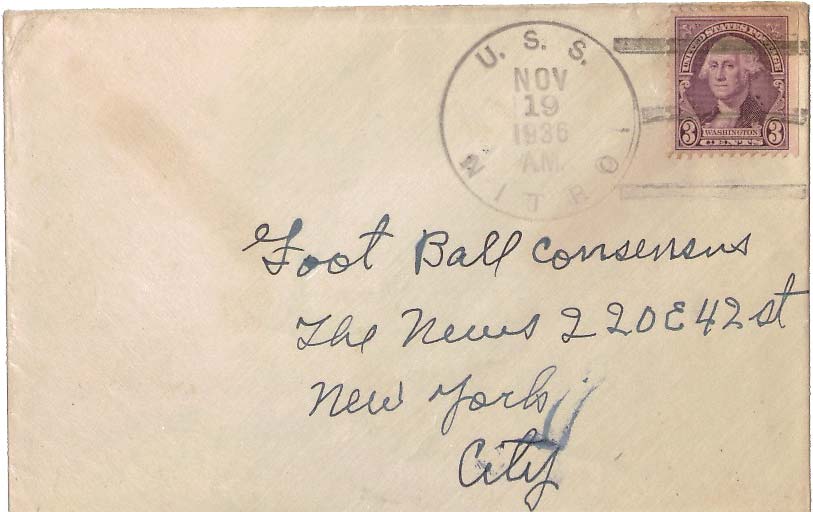 U. S. S.
NOV
19
1936
AM.
NITRO
UNITED STATES POSTAGE
WASHINGTON
3 CENTS 3
Foot Ball Consensus
The News 220 E 42 st
New York
City